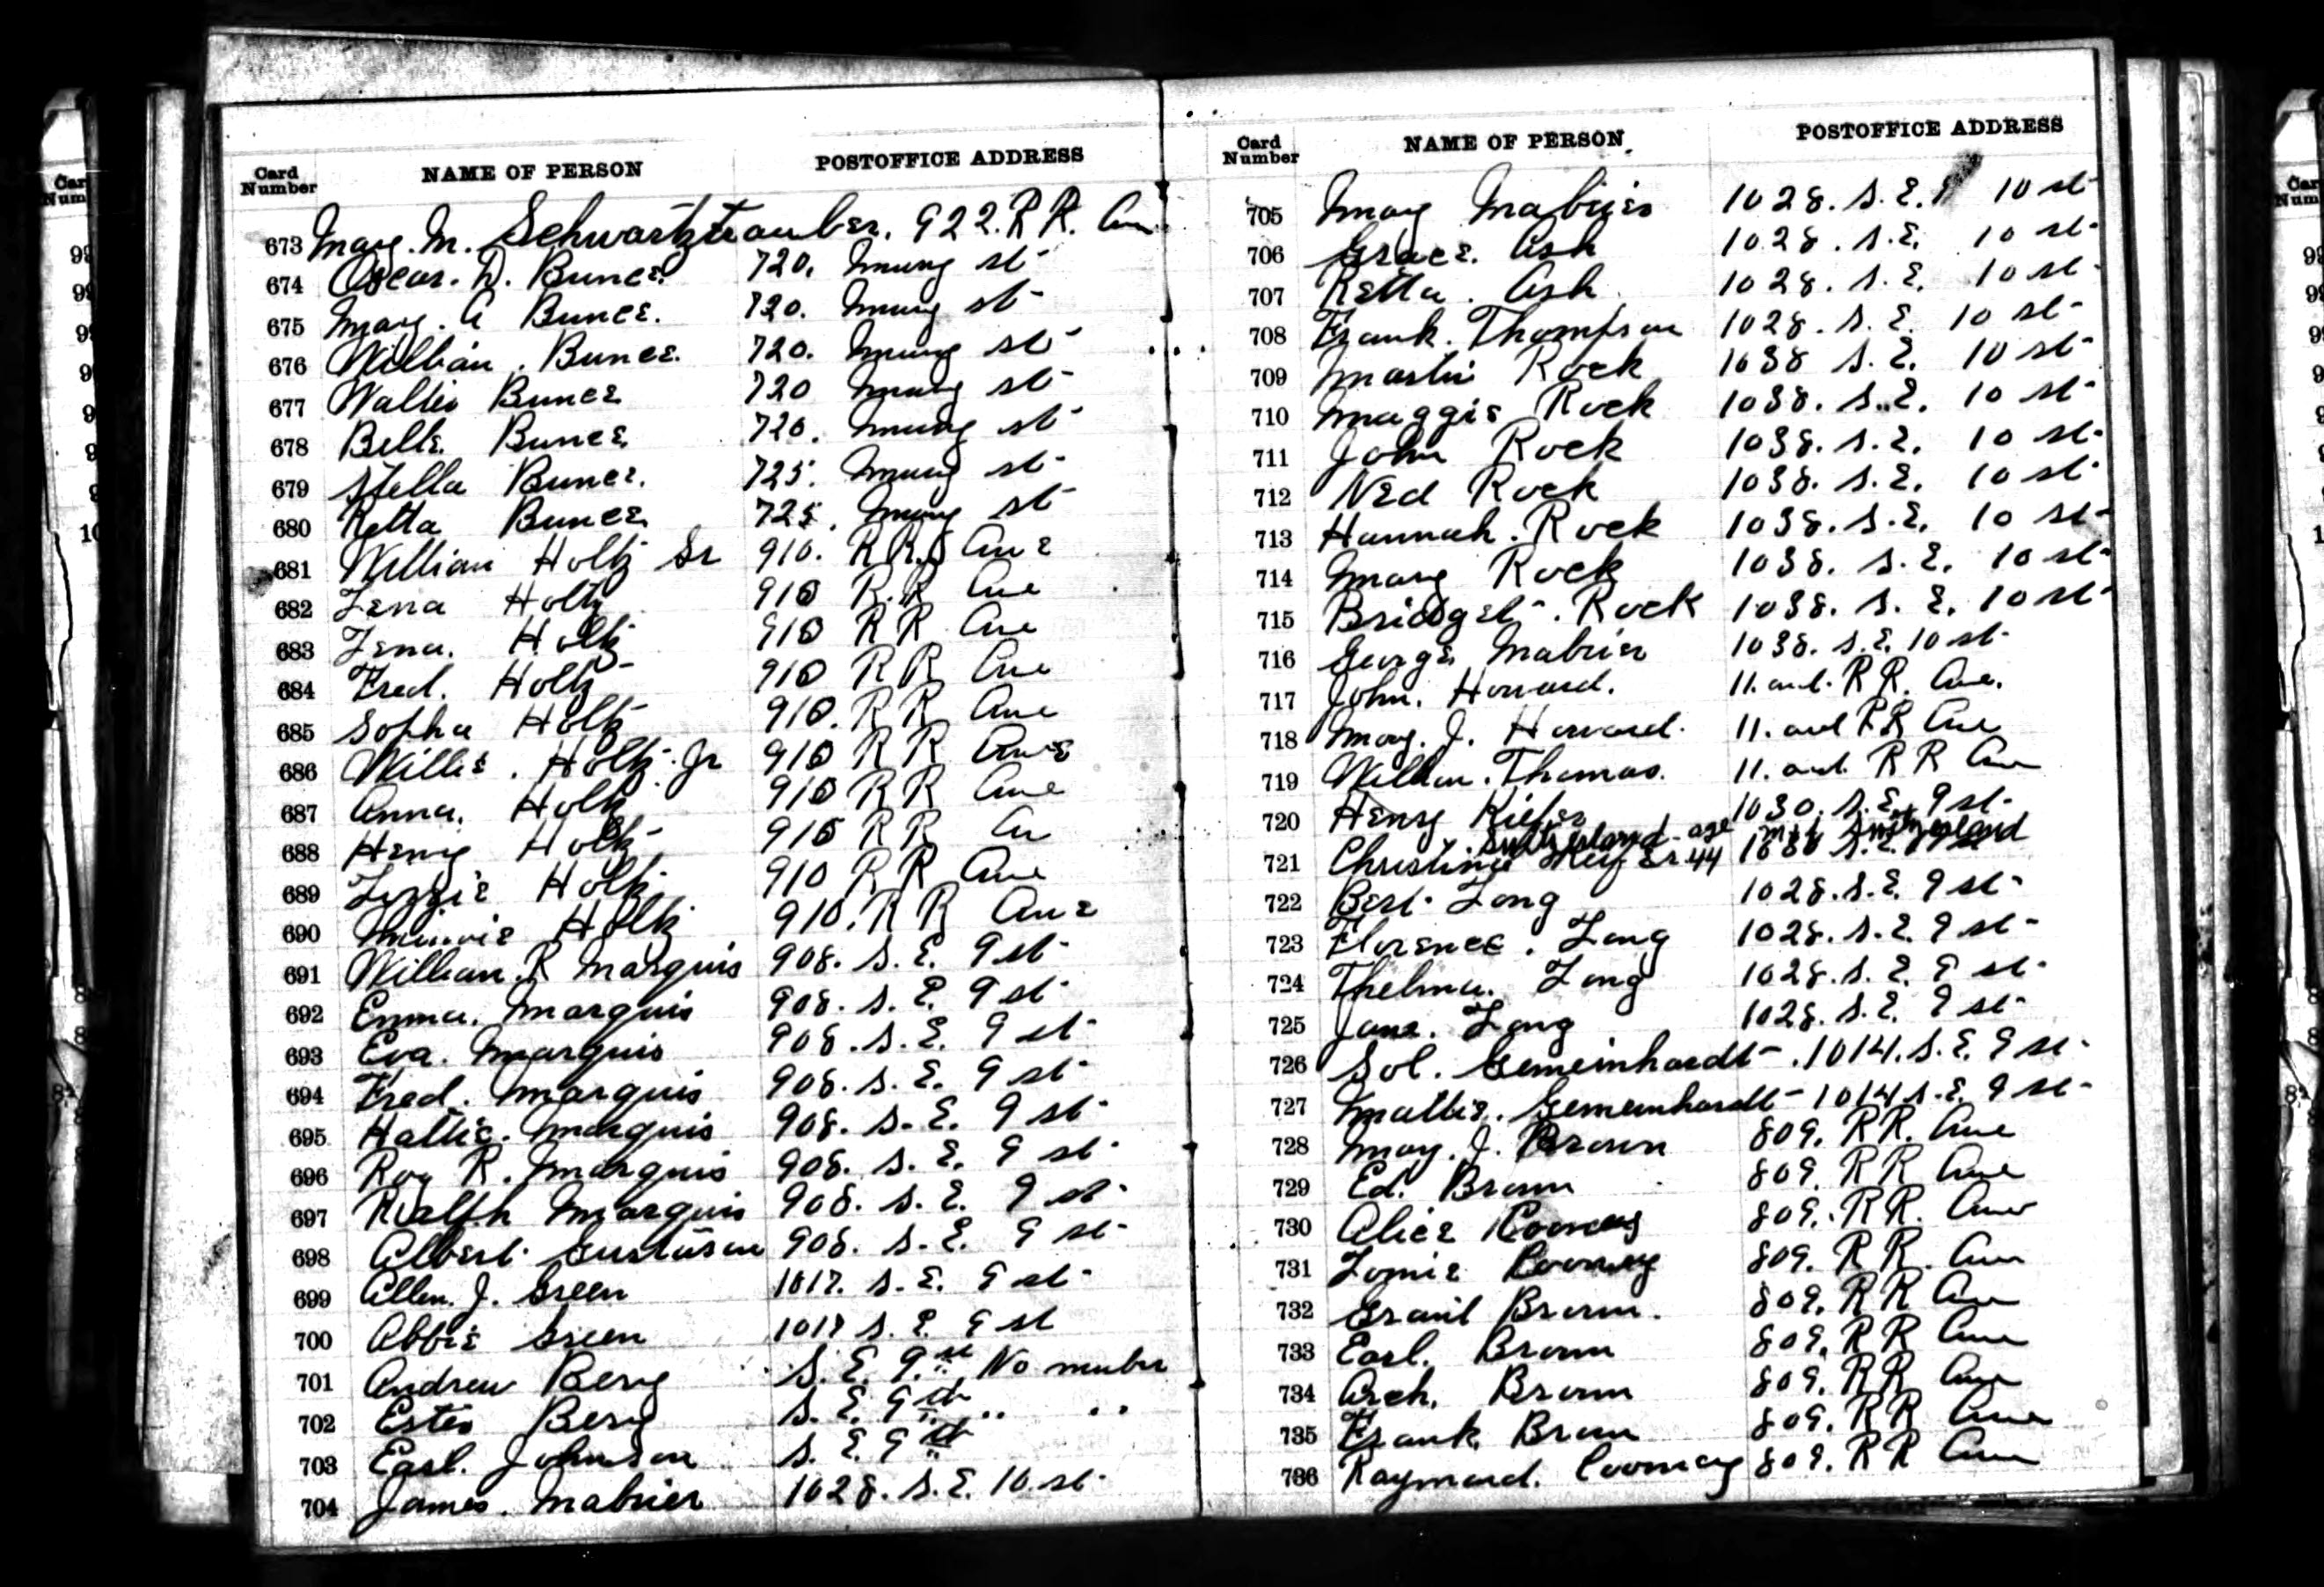 Card Number NAME OF PERSON POSTOFFICE ADDRESS
673 Mary. M. Schwartztrauber. 922. R R. Ave
674 Oscar. D. Bunce. 720. Mung st
675 Mary. A Bunce. 720. Mung st
676 William. Bunce. 720. Mung st
677 Walter Bunce 720 Mung st
678 Belle Bunce 720. Mung st
679 Stella Bunce. 725. Mung st
680 Retta Bunce 725. Mung st
681 William Holtz Sr 910. R R. Ave
682 Lena Holtz 910 R. R Ave
683 Lena. Holtz 910 R R Ave
684 Fred. Holtz 910 R R Ave
685 Sopha Holtz 910. R R Ave
686 Willie. Holtz Jr 910 R R Ave
687 Anna. Holtz 910 R R Ave
688 Henry Holtz 910 R R Av
689 Lizzie Holtz 910 R R Ave
690 Minnie Holtz 910. R R Ave
691 William. R Marquis 908. S. E. 9 st
692 Emma. Marquis 908. S. E. 9 st
693 Eva. Marquis 908. S. E. 9 st
694 Fred. Marquis 908. S. E. 9 st
695 Hattie. Marquis 908. S. E. 9 st
696 Roy R. Marquis 908. S. E. 9 st
697 Ralph Marquis 908. S. E. 9 st
698 Albert Gustason 908. S. E. 9 st
699 Allen. J. Green 1017. S. E. 9 st
700 Abbie Green 1017 S. E. 9 st
701 Andrew Berg S. E. 9. st No number
702 Ester Berg S. E. 9 th " "
703 Earl. Johnson S. E. 9 th
704 James. Mabrier 1028. S. E. 10. st
Card Number NAME OF PERSON POSTOFFICE ADDRESS
705 Mary Mabrier 1028. S. E. 10 st
706 Grace. Ash 1028. S. E. 10 st
707 Retta. Ash 1028. S. E. 10 st
708 Frank. Thompson 1028. S. E. 10 st
709 Martin Rock 1038 S. E. 10 st
710 Maggie Rock 1038. S. E. 10 st
711 John Rock 1038. S. E. 10 st
712 Ned Rock 1038. S. E. 10 st
713 Hannah. Rock 1038. S. E. 10 st
714 Mary Rock 1038. S. E. 10 st
715 Bridget. Rock 1038. S. E. 10 st
716 George Mabrier 1038. S. E. 10 st
717 John. Howard. 11. and. R R. Ave.
718 Mary. J. Howard. 11. and R R Ave
719 William. Thomas. 11. and R R Ave
720 Henry Kiefer 1030. S. E. 9 st
721 Christina 44
722 Bert Long 1028. S. E. 9 st
723 Florence. Long 1028. S. E. 9 st
724 Thelma. Long 1028. S. E. 9 st
725 Jane. Long 1028. S. E. 9 st
726 Sol. Gemeinhardt. 1014. S. E. 9 st
727 Mattie. Gemeinhardt 1014 S. E. 9 st
728 May. J. Brown 809. R R. Ave
729 Ed. Brown 809. R R Ave
730 Alice 809. R R. Ave
731 809. R R. Ave
732 Brown. 809. R R Ave
733 Earl. Brown 809. R R Ave
734 Arch. Brown 809. R R Ave
735 Frank Brown 809. R R Ave
736 Raymond. 809. R R Ave